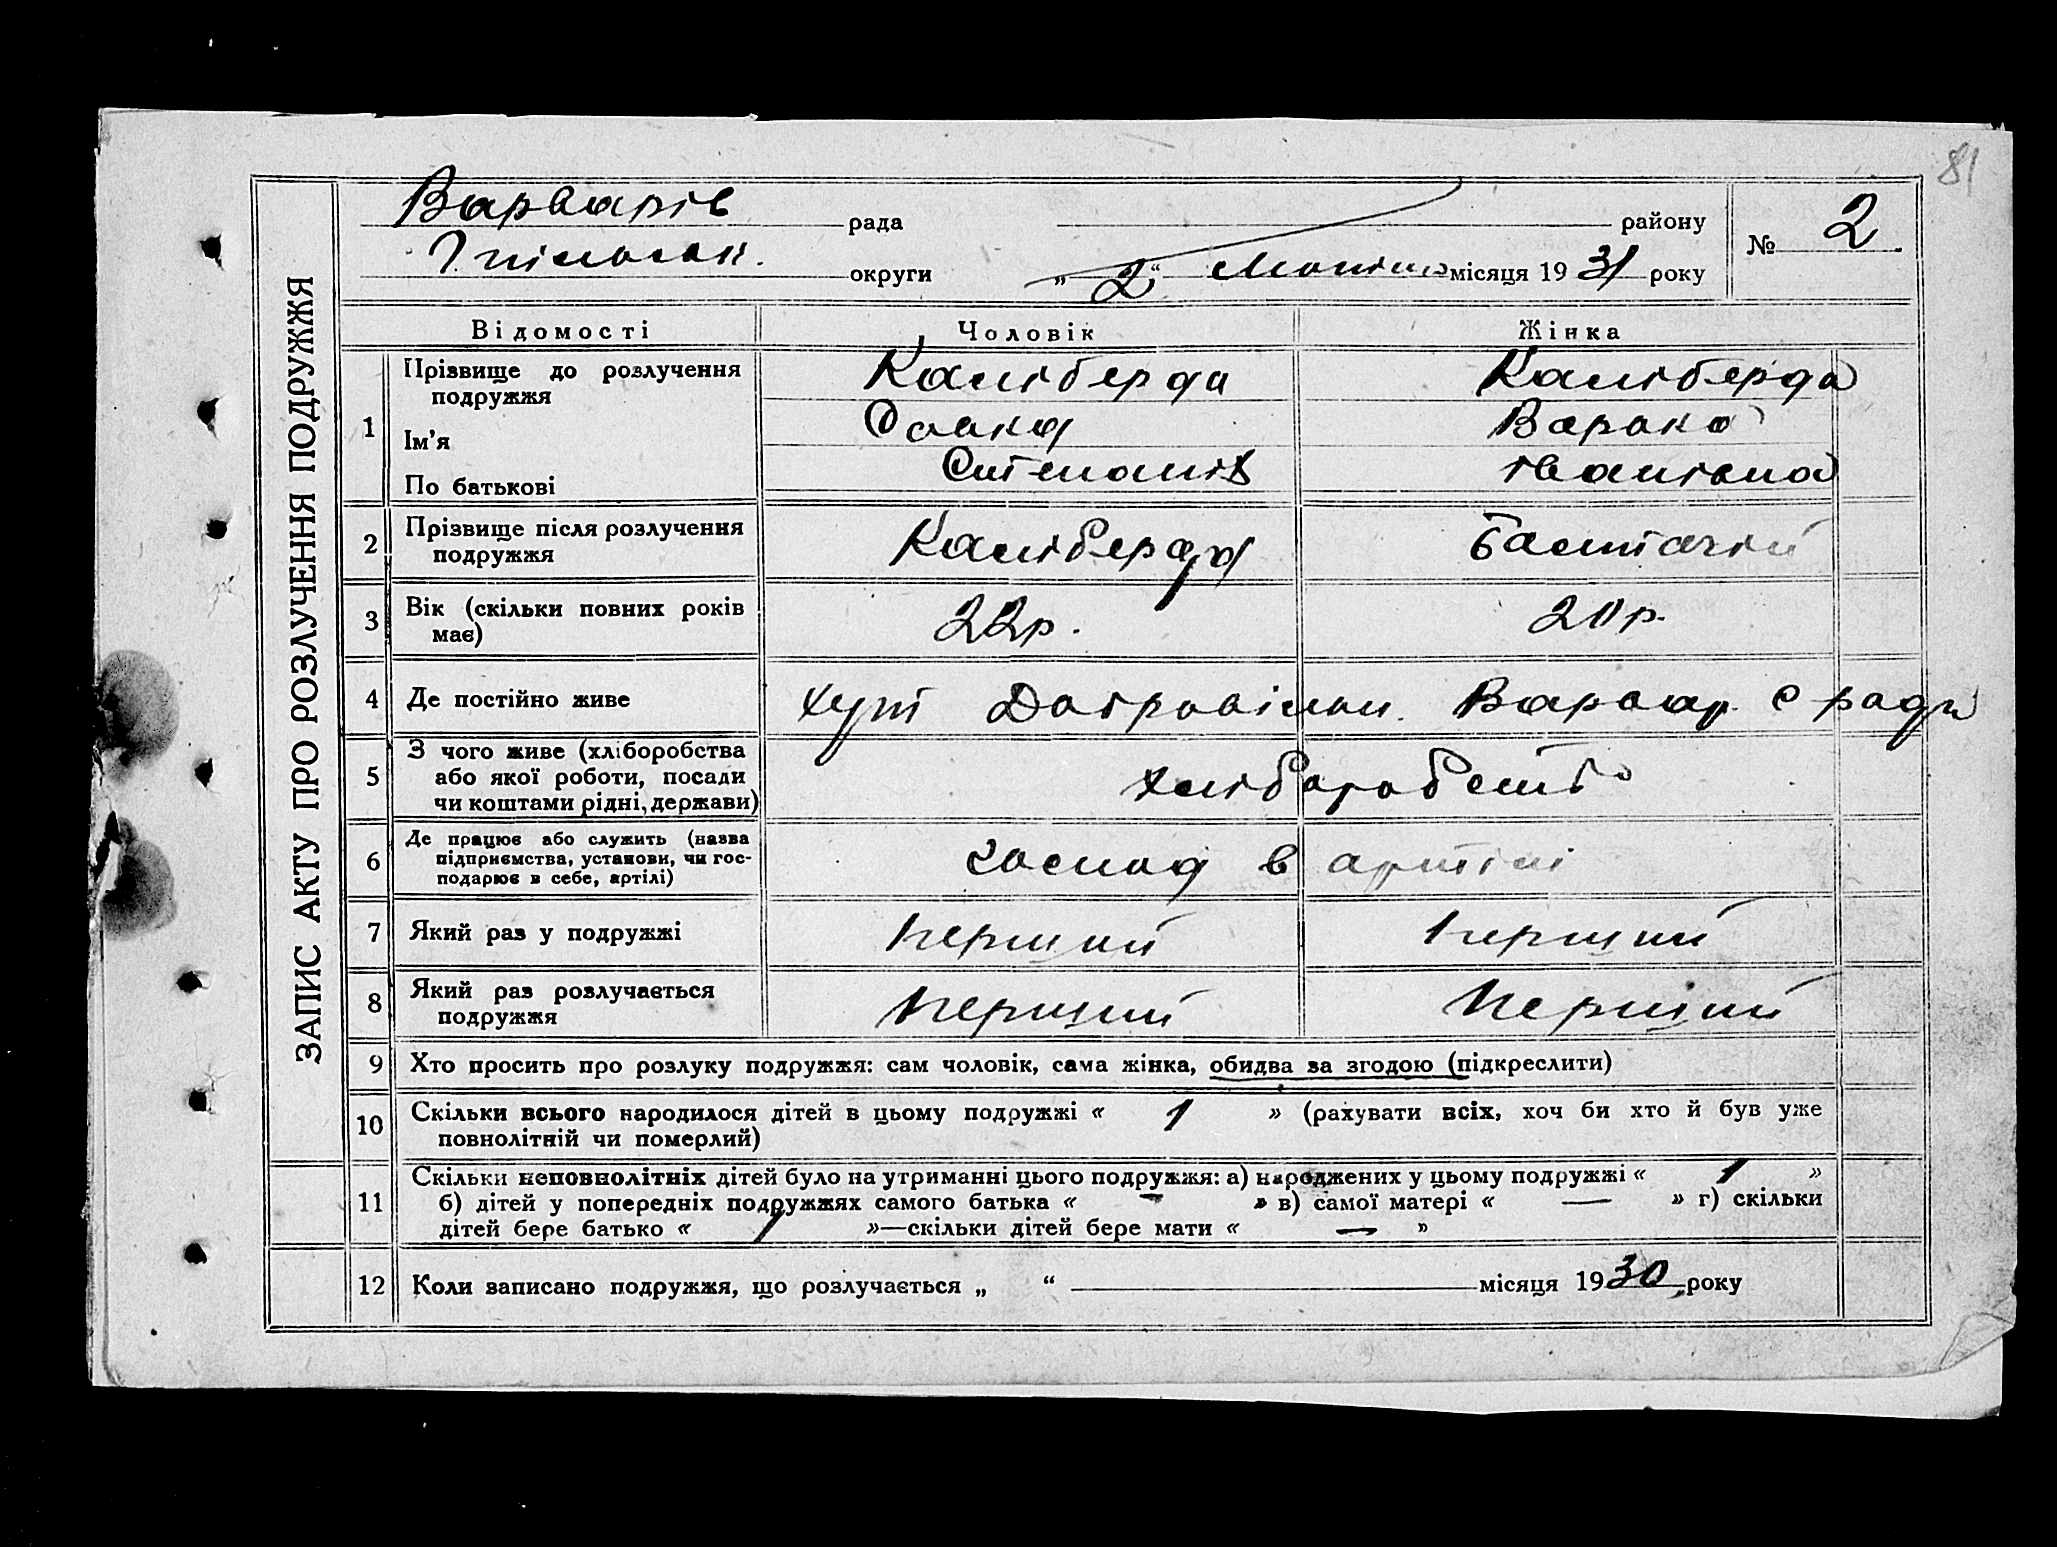 81
ЗАПИС АКТУ ПРО РОЗЛУЧЕННЯ ПОДРУЖЖЯ
Варварів рада району
округи „ 2 “ місяця 19 31 року
№ 2
Відомості Чоловік Жінка
1 Прізвище до розлучення подружжя Калиберда Калиберда
Ім’я Варька
По батькові Степанів Іванівна
2 Прізвище після розлучення подружжя Калиберда
3 Вік (скільки повних років має) 22р. 20р.
4 Де постійно живе хут Варвар. с ради
5 З чого живе (хліборобства
або якої роботи, посади
чи коштами рідні, держави) хліборобств
6 Де працює або служить (назва
підприємства, установи, чи гос-
подарює в себе, артілі) господ в артілі
7 Який раз у подружжі перший перший
8 Який раз розлучається
подружжя перший перший
9 Хто просить про розлуку подружжя: сам чоловік, сама жінка, обидва за згодою (підкреслити)
10 Скільки всього народилося дітей в цьому подружжі « 1 » (рахувати всіх, хоч би хто й був уже
повнолітній чи померлий)
11 Скільки неповнолітніх дітей було на утриманні цього подружжя: а) народжених у цьому подружжі « 1 »
б) дітей у попередніх подружжях самого батька « — » в) самої матері « — » г) скільки
дітей бере батько « 1 »—скільки дітей бере мати « — »
12 Коли записано подружжя, що розлучається „ “ місяця 19 30 року